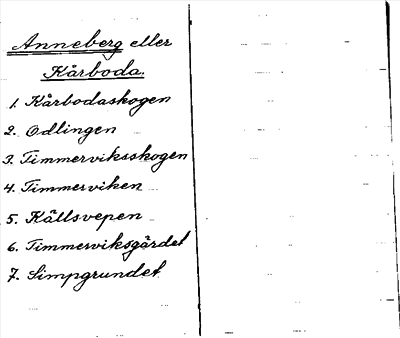 Anneberg eller
Kårboda.
1. Kårbodaskogen
2. Odlingen
3. Timmerviksskogen
4. Timmerviken
5. Källsvepen
6. Timmerviksgärdet
7. Simpgrundet